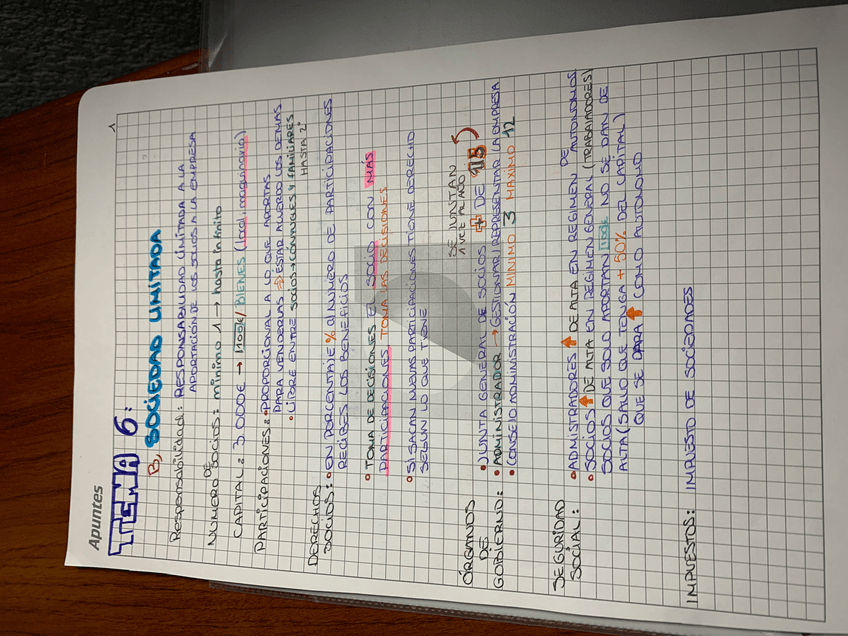 Apuntes
1
TEMA 6:
B) SOCIEDAD LIMITADA
Responsabilidad: RESPONSABILIDAD LIMITADA A LA
APORTACIÓN DE LOS SOCIOS A LA EMPRESA
NUMERO DE SOCIOS: mínimo 1 → hasta infinito
CAPITAL: 3.000€ → 100€/BIENES (local, maquinaria)
PARTICIPACIONES: • PROPORCIONAL A LO QUE APORTAS
PARA VENDERLAS → ESTAR ACUERDO LOS DEMAS
• LIBRE ENTRE SOCIOS + CÓNYUGES Y FAMILIARES
HASTA 2º
DERECHOS
SOCIOS: • EN PORCENTAJE % al NUMERO DE PARTICIPACIONES
RECIBES LOS BENEFICIOS
• TOMA DE DECISIONES EL SOCIO CON MÁS
PARTICIPACIONES TOMA LAS DECISIONES
• SI SACAN NUEVAS PARTICIPACIONES TIENE DERECHO
SEGÚN LO QUE TIENE
SE JUNTAN
1 VEZ AL AÑO
ÓRGANOS
DE
GOBIERNO: • JUNTA GENERAL DE SOCIOS DE
• ADMINISTRADOR → GESTIONAR/REPRESENTAR LA EMPRESA
• CONSEJO ADMINISTRACIÓN MINIMO 3 MAXIMO 12
SEGURIDAD
SOCIAL: • ADMISTRADORES DE ALTA EN REGIMEN DE AUTONOMOS
• SOCIOS DE ALTA EN REGIMEN GENERAL (TRABAJADORES)
SOCIOS QUE SOLO APORTAN NO SE DAN DE
ALTA (SALVO QUE TENGA + 50% DEL CAPITAL)
QUE SE DARA COMO AUTONOMO
IMPUESTOS: IMPUESTO DE SOCIEDADES